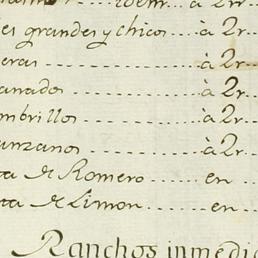 idem... à 2r...
es grandes y chicos ... à 2r..
eras ... à 2r
anados ... à 2r..
mbrillos ... à 2r.
anzanos ... à 2r..
ta de Romero ... en
ta de Limon ... en
Ranchos inmedia